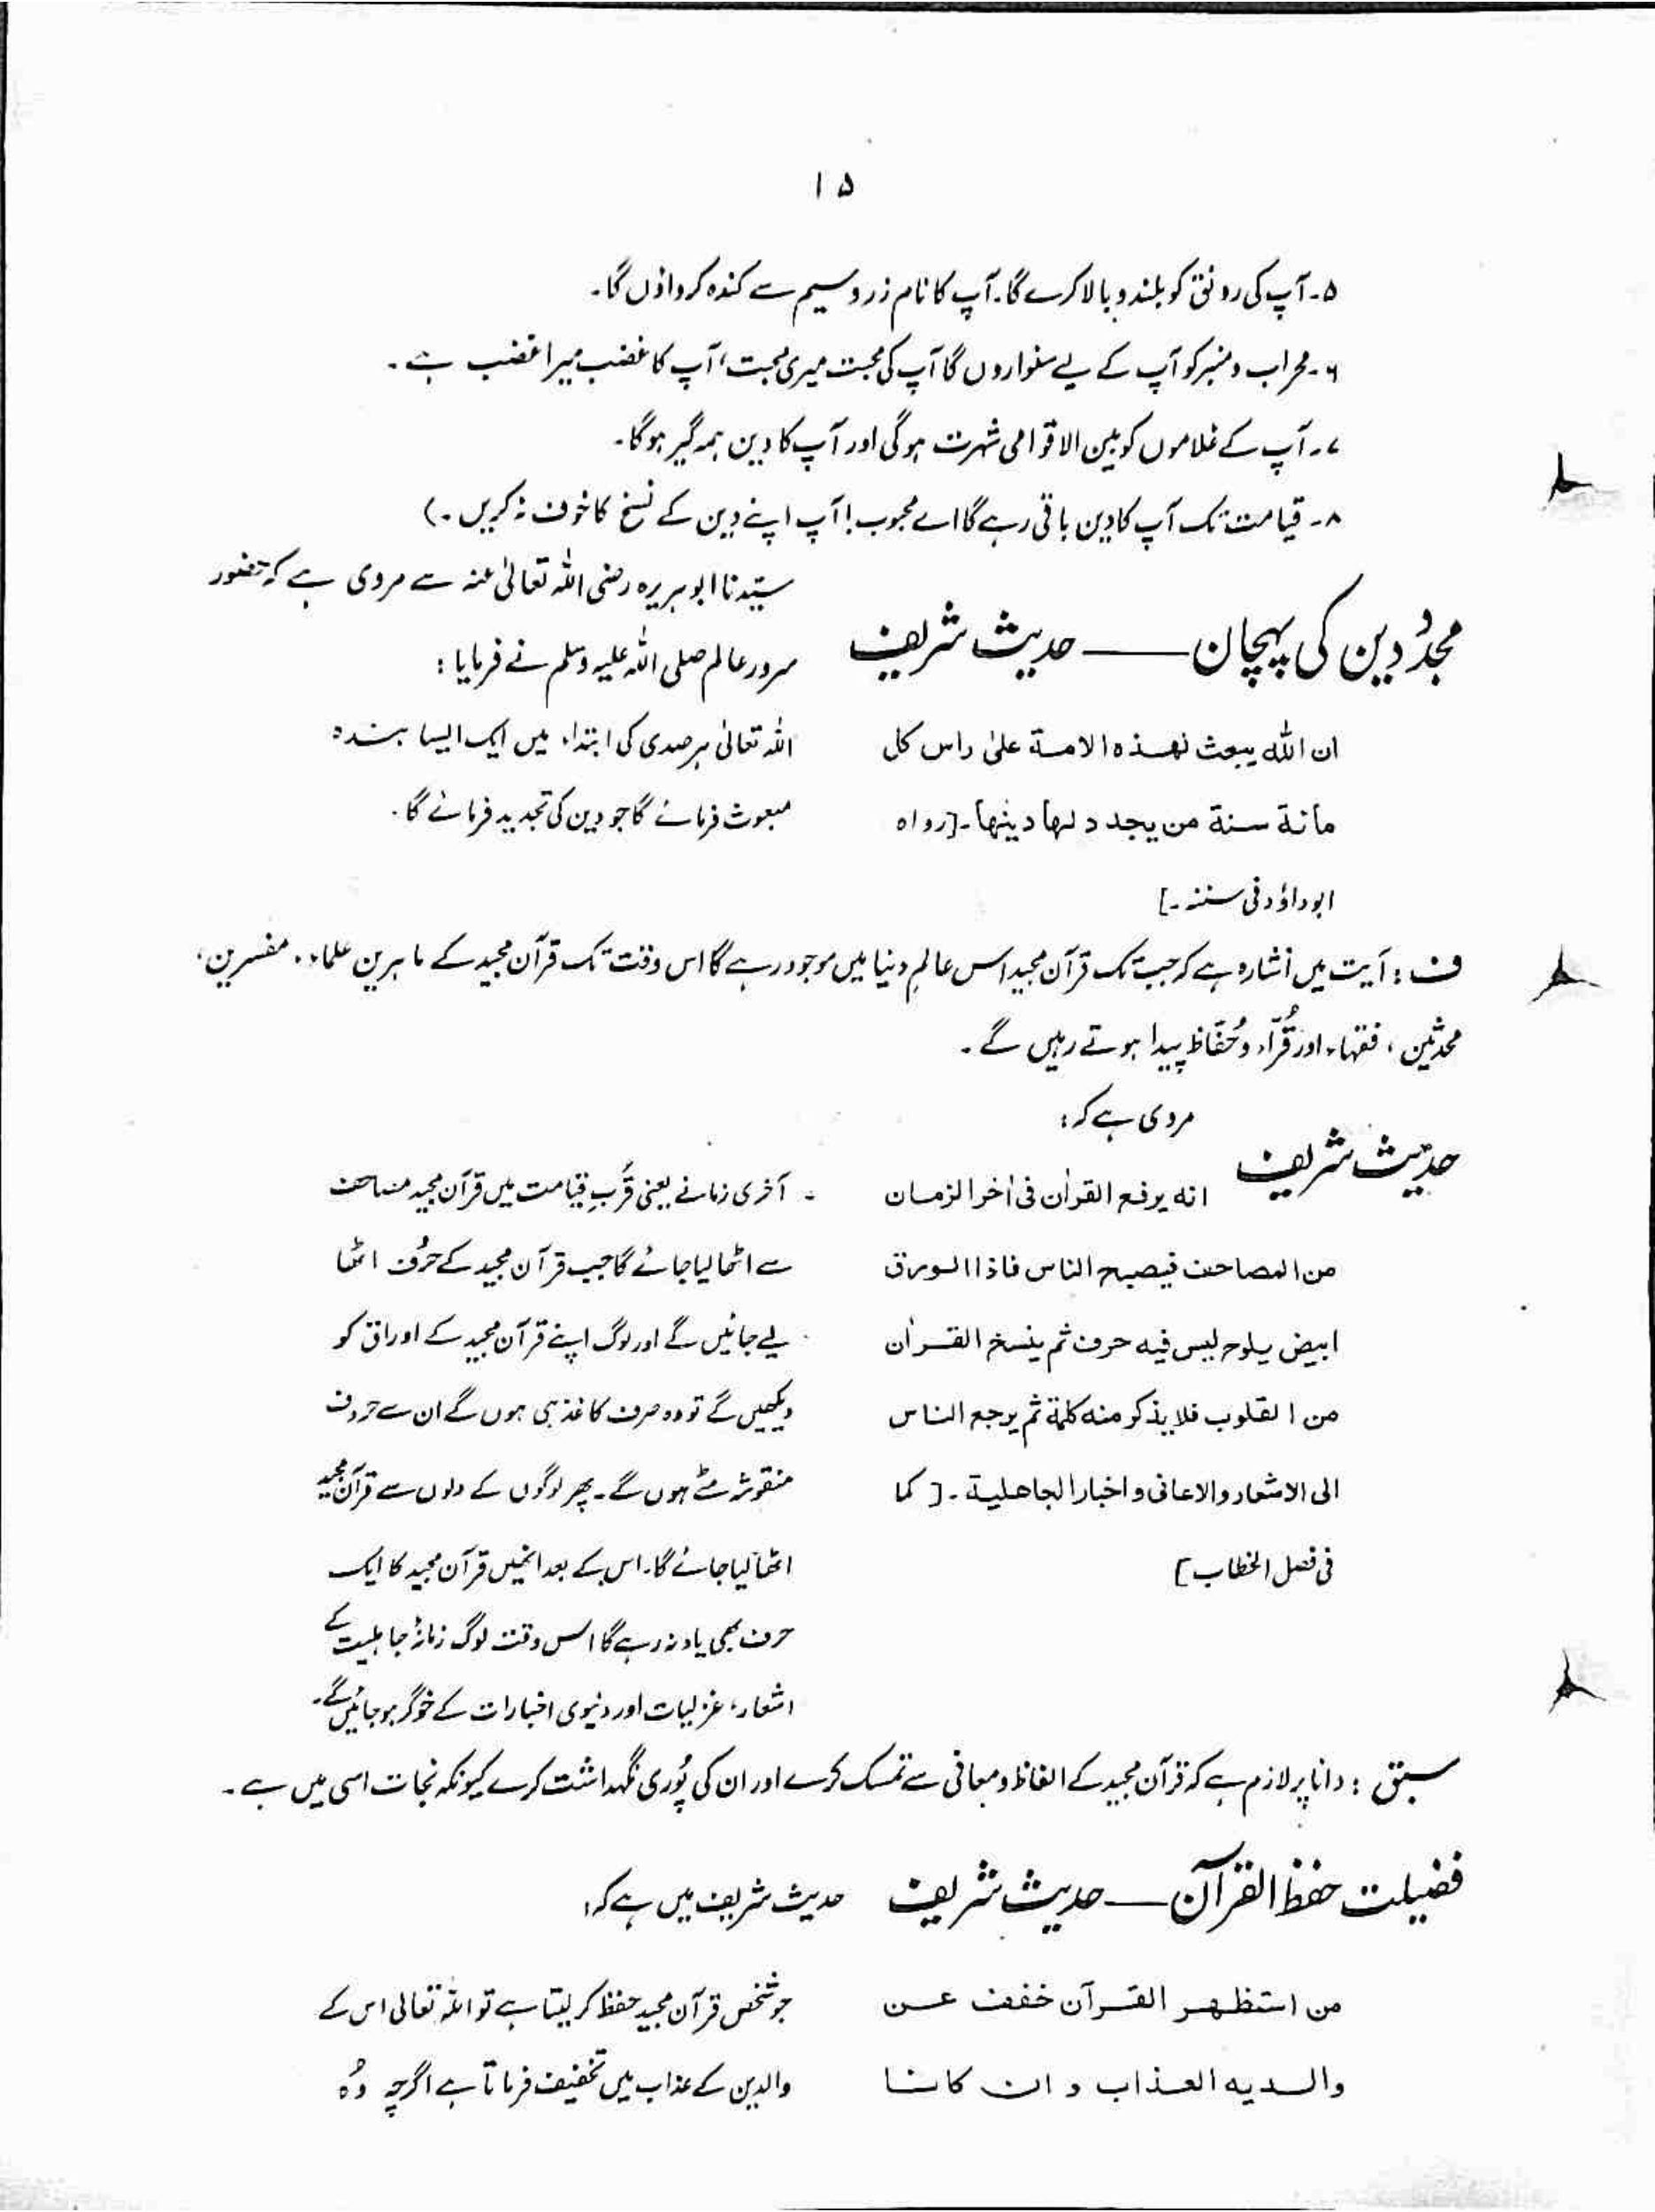 ۱۵
۵۔ آپ کی رونق کو بلند و بالا کرے گا۔ آپ کا نام زر و سیم سے کندہ کرواؤں گا۔
۶۔ محراب و منبر کو آپ کے لیے سنواروں گا آپ کی محبت میری محبت، آپ کا غضب میرا غضب ہے۔
۷۔ آپ کے غلاموں کو بین الاقوامی شہرت ہوگی اور آپ کا دین ہمہ گیر ہوگا۔
۸۔ قیامت تک آپ کا دین باقی رہے گا اے محبوب! آپ اپنے دین کے نسخ کا خوف نہ کریں۔)
مجدّدِ دین کی پہچان — حدیث شریف
سیّدنا ابوہریرہ رضی اللہ تعالیٰ عنہ سے مروی ہے کہ حضور
سرور عالم صلی اللہ علیہ وسلم نے فرمایا:
ان اللہ یبعث لهذه الامة علیٰ راس کل
مائة سنة من یجدد لها دینها۔[رواه
ابوداؤد فی سننہ۔]
اللہ تعالیٰ ہر صدی کی ابتداء میں ایک ایسا بندہ
مبعوث فرمائے گا جو دین کی تجدید فرمائے گا۔
ف: آیت میں اشارہ ہے کہ جب تک قرآن مجید اس عالمِ دنیا میں موجود رہے گا اس وقت تک قرآن مجید کے ماہرین علماء، مفسرین،
محدثین، فقہاء اور قُرّآء و حُفّاظ پیدا ہوتے رہیں گے۔
حدیث شریف
مروی ہے کہ:
انه یرفع القراٰن فی اٰخر الزمان
من المصاحف فیصبح الناس فاذا الورق
ابیض یلوح لیس فیه حرف ثم ینسخ القراٰن
من القلوب فلا یذکر منه کلمة ثم یرجع الناس
الی الاشعار والاغانی و اخبار الجاهلیة۔[ کما
فی فصل الخطاب]
آخری زمانے یعنی قُربِ قیامت میں قرآن مجید مصاحف
سے اٹھا لیا جائے گا جب قرآن مجید کے حرُف اٹھا
لیے جائیں گے اور لوگ اپنے قرآن مجید کے اوراق کو
دیکھیں گے تو وہ صرف کاغذ ہی ہوں گے ان سے حروف
منقوش مٹے ہوں گے۔ پھر لوگوں کے دلوں سے قرآن مجید
اٹھا لیا جائے گا۔ اس کے بعد انھیں قرآن مجید کا ایک
حرف بھی یاد نہ رہے گا اس وقت لوگ زمانۂ جاہلیت کے
اشعار، غزلیات اور دنیوی اخبارات کے خوگر ہو جائیں گے۔
سبق: دانا پر لازم ہے کہ قرآن مجید کے الفاظ و معانی سے تمسک کرے اور ان کی پُوری نگہداشت کرے کیونکہ نجات اسی میں ہے۔
فضیلت حفظ القرآن — حدیث شریف
حدیث شریف میں ہے کہ:
من استظهر القرآن خفف عن
والدیه العذاب و ان کانا
جو شخص قرآن مجید حفظ کر لیتا ہے تو اللہ تعالیٰ اس کے
والدین کے عذاب میں تخفیف فرماتا ہے اگرچہ وُہ